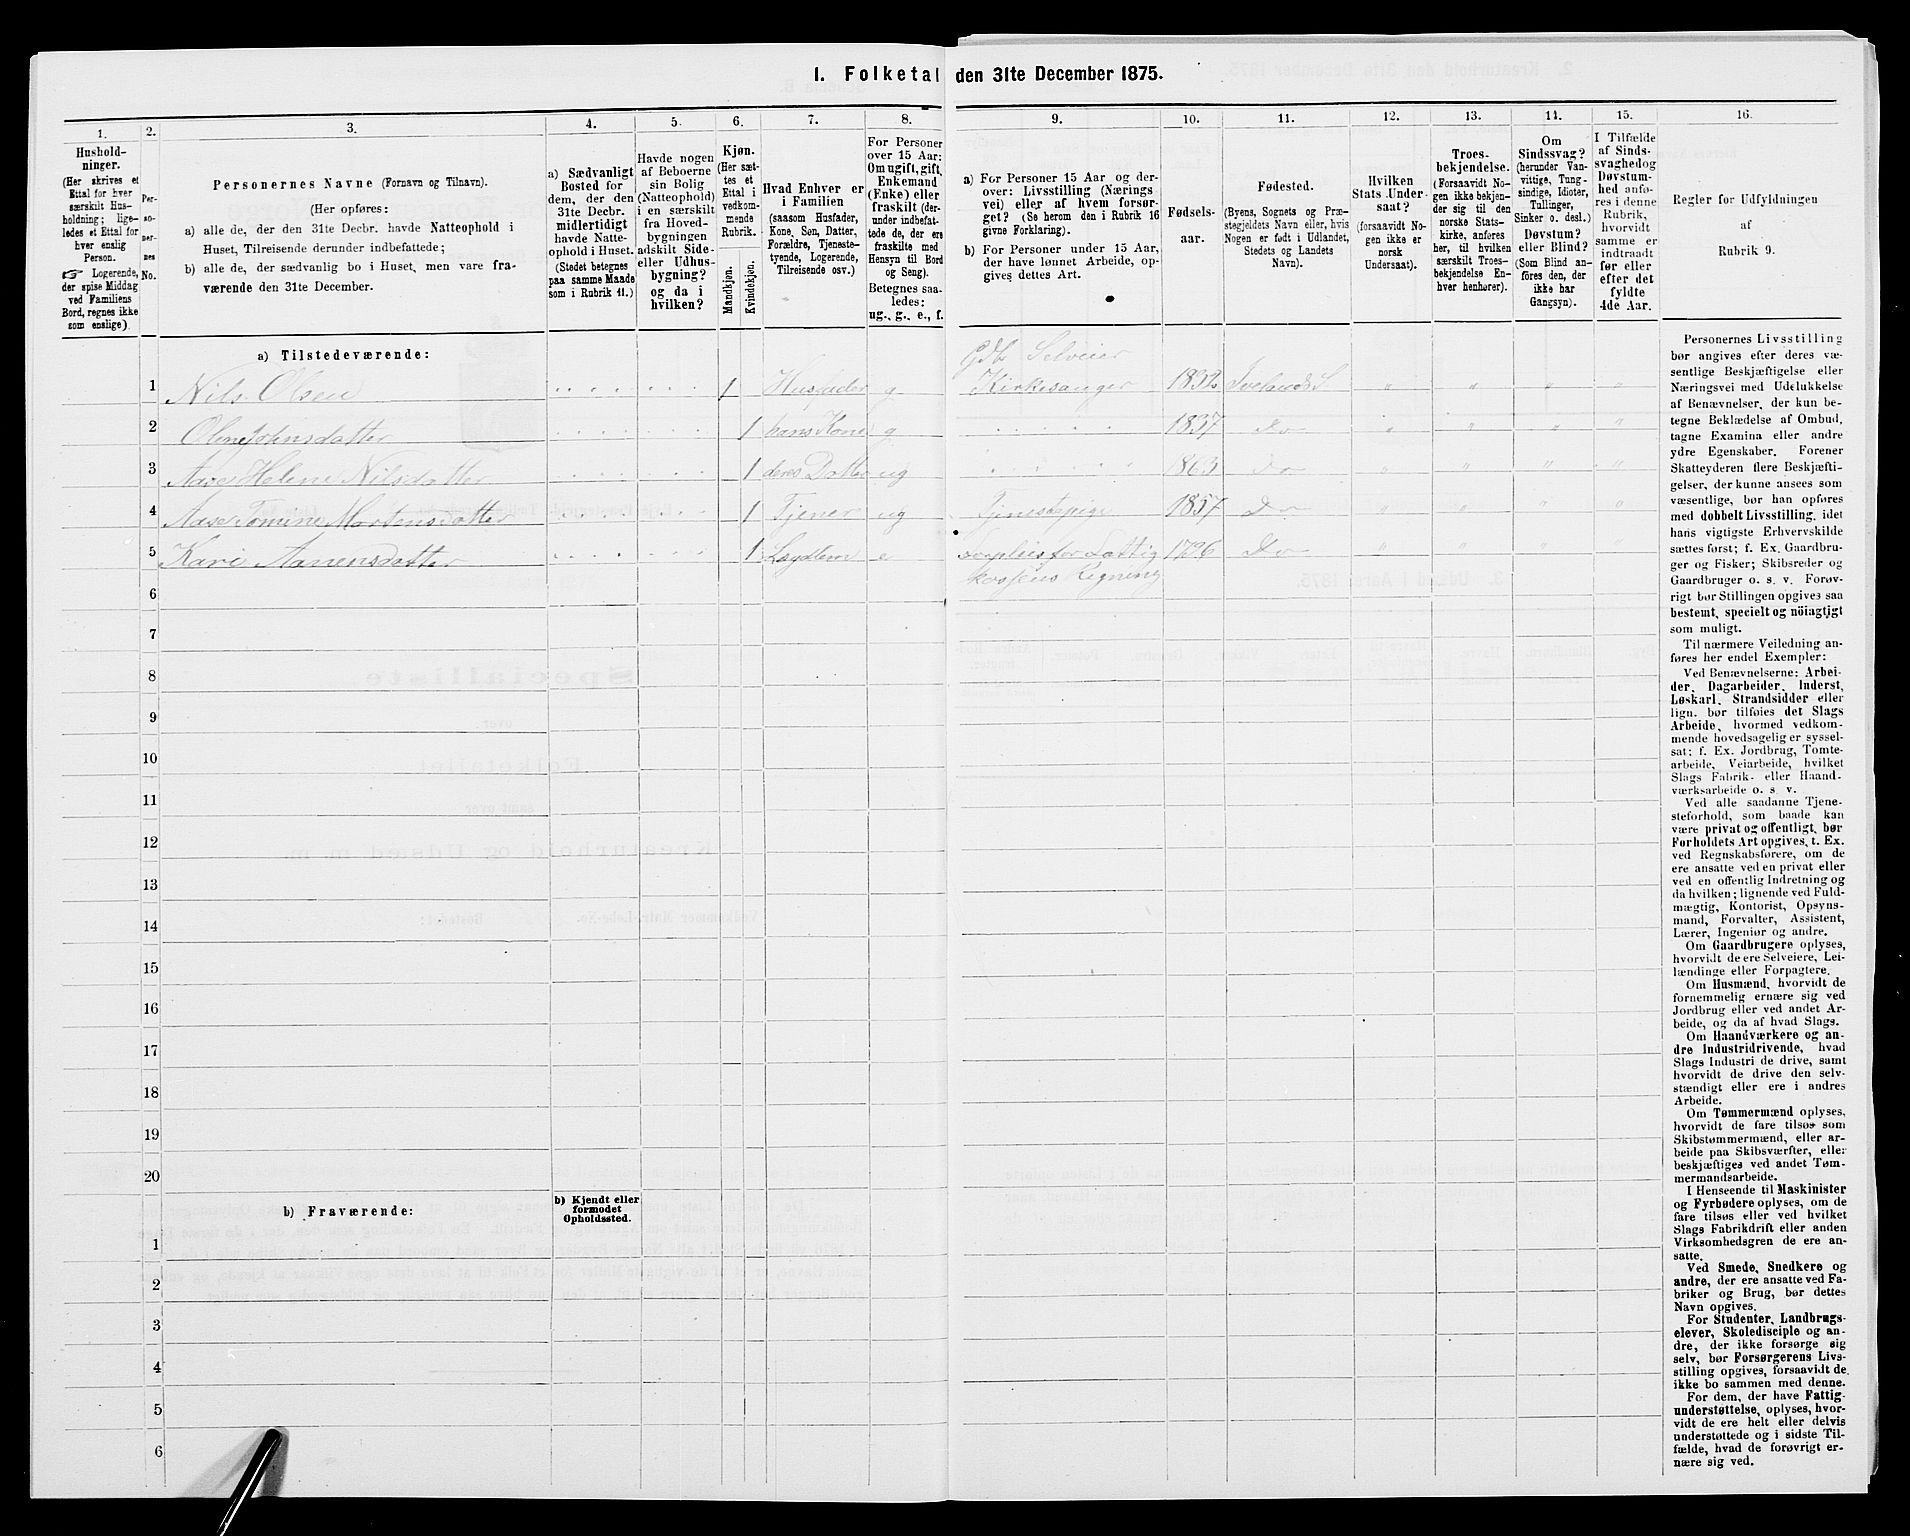 I. Folketal den 31te December 1875.
1.
Hushold-
ninger.
(Her skrives et
Ettal for hver
særskilt Hus-
holdning; lige-
ledes et Ettal for
hver enslig
Person.
☞ Logerende,
der spise Middag
ved Familiens
Bord, regnes ikke
som enslige).
2.
Per-
so-
ner-
nes
No.
3.
Personernes Navne (Fornavn og Tilnavn).
(Her opføres:
a) alle de, der den 31te Decbr. havde Natteophold i
Huset, Tilreisende derunder indbefattede;
b) alle de, der sædvanlig bo i Huset, men vare fra-
værende den 31te December.
4.
a) Sædvanligt
Bosted for
dem, der den
31te Decbr.
midlertidigt
havde Natte-
ophold i Huset.
(Stedet betegnes
paa samme Maade
som i Rubrik 11.)
5.
Havde nogen
af Beboerne
sin Bolig
(Natteophold)
i en særskilt
fra Hoved-
bygningen
adskilt Side-
eller Udhus-
bygning?
og da i
hvilken?
6.
Kjøn.
(Her sæt-
tes et
Ettal i
vedkom-
mende
Rubrik.
Mandkjøn.
Kvindekjøn.
7.
Hvad Enhver er
i Familien
(saasom Husfader,
Kone, Søn, Datter,
Forældre, Tjeneste-
tyende, Logerende,
Tilreisende osv.)
8.
For Personer
over 15 Aar:
Om ugift, gift,
Enkemand
(Enke) eller
fraskilt (der-
under indbefat-
tede de, der ere
fraskilte med
Hensyn til Bord
og Seng).
Betegnes saa-
ledes:
ug., g., e., f.
9.
a) For Personer 15 Aar og der-
over: Livsstilling (Nærings
vei) eller af hvem forsør-
get? (Se herom den i Rubrik 16
givne Forklaring).
b) For Personer under 15 Aar,
der have lønnet Arbeide, op-
gives dettes Art.
10.
Fødsels-
aar.
11.
Fødested.
(Byens, Sognets og Præ-
stegjeldets Navn eller, hvis
Nogen er født i Udlandet,
Stedets og Landets
Navn).
12.
Hvilken
Stats Under-
saat?
(forsaavidt No-
gen ikke er
norsk
Undersaat).
13.
Troes-
bekjendelse.
(Forsaavidt No-
gen ikke bekjen-
der sig til den
norske Stats-
kirke, anføres
her, til hvilken
særskilt Troes-
bekjendelse En-
hver henhører).
14.
Om
Sindssvag?
(herunder Van-
vittige, Tung-
sindige, Idioter,
Tullinger,
Sinker o. desl.)
Døvstum?
eller Blind?
(Som Blind an-
føres den, der
ikke har
Gangsyn).
15.
I Tilfælde
af Sinds-
svaghed og
Døvstum-
hed anfø-
res i denne
Rubrik,
hvorvidt
samme er
indtraadt
før eller
efter det
fyldte
4de Aar.
16.
Regler for Udfyldningen
af
Rubrik 9.
a) Tilstedeværende:
Gdb Selveier
1 Nils Olsen 1 Husfader g Kirkesanger 1832 Ivelands S " " " "
2 Oline Johnsdatter 1 hans Kone g 1837 Do " " " "
3 Aase Helene Nilsdatter 1 deres Datter ug 1863 Do " " " "
4 Aase Tomine Mortensdatter 1 Tjener ug Tjenestepige 1857 Do " "
5 Kari Aanensdatter 1 Lægdlem e forpleies for Fattig 1796 Do " " " "
kassens Regning
6
7
8
9
10
11
12
13
14
15
16
17
18
19
20
b) Fraværende:
b) Kjendt eller
formodet
Opholdssted.
1
2
3
4
5
6
Personernes Livsstilling
bør angives efter deres væ-
sentlige Beskjæftigelse eller
Næringsvei med Udelukkelse
af Benævnelser, der kun be-
tegne Beklædelse af Ombud,
tagne Examina eller andre
ydre Egenskaber. Forener
Skatteyderen flere Beskjæfti-
gelser, der kunne ansees som
væsentlige, bør han opføres
med dobbelt Livsstilling, idet
hans vigtigste Erhvervskilde
sættes først; f. Ex. Gaardbru-
ger og Fisker; Skibsreder og
Gaardbruger o. s. v. Forøv-
rigt bør Stillingen opgives saa
bestemt, specielt og nöiagtigt
som muligt.
Til nærmere Veiledning an-
føres her endel Exempler:
Ved Benævnelserne: Arbei-
der, Dagarbeider, Inderst,
Løskarl, Strandsidder eller
lign. bør tilføies det Slags
Arbeide, hvormed vedkom-
mende hovedsagelig er syssel-
sat; f. Ex. Jordbrug, Tomte-
arbeide, Veiarbeide, hvilket
Slags Fabrik- eller Haand-
værksarbeide o. s. v.
Ved alle saadanne Tjene-
steforhold, som baade kan
være privat og offentligt, bør
Forholdets Art opgives, t. Ex.
ved Regnskabsførere, om de
ere ansatte ved en privat eller
ved en offentlig Indretning og
da hvilken; lignende ved Fuld-
mægtig, Kontorist, Opsyns-
mand, Forvalter, Assistent,
Lærer, Ingeniør og andre.
Om Gaardbrugere oplyses,
hvorvidt de ere Selveiere, Lei-
lændinge eller Forpagtere.
Om Husmænd, hvorvidt de
fornemmelig ernære sig ved
Jordbrug eller ved andet Ar-
beide, og da af hvad Slags.
Om Haandværkere og an-
dre Industridrivende, hvad
Slags Industri de drive, samt
hvorvidt de drive den selv-
stændigt eller ere i andres
Arbeide.
Om Tømmermænd oplyses,
hvorvidt de fare tilsøs som
Skibstømmermænd, eller ar-
beide paa Skibsværfter, eller
beskjæftiges ved andet Tøm-
mermandsarbeide.
I Henseende til Maskinister
og Fyrbødere oplyses, om de
fare tilsøs eller ved hvilket
Slags Fabrikdrift eller anden
Virksomhedsgren de ere an-
satte.
Ved Smede, Snedkere og
andre, der ere ansatte ved Fa-
briker og Brug, bør dettes
Navn opgives.
For Studenter, Landbrugs-
elever, Skoledisciple og an-
dre, der ikke forsørge sig
selv, bør Forsørgerens Livs-
stilling opgives, forsaavidt de
ikke bo sammen med denne.
For dem, der have Fattig-
understøttelse, oplyses, hvor-
vidt de ere helt eller delvis
understøttede og i sidste Til-
fælde, hvad de forøvrigt er-
nære sig ved.